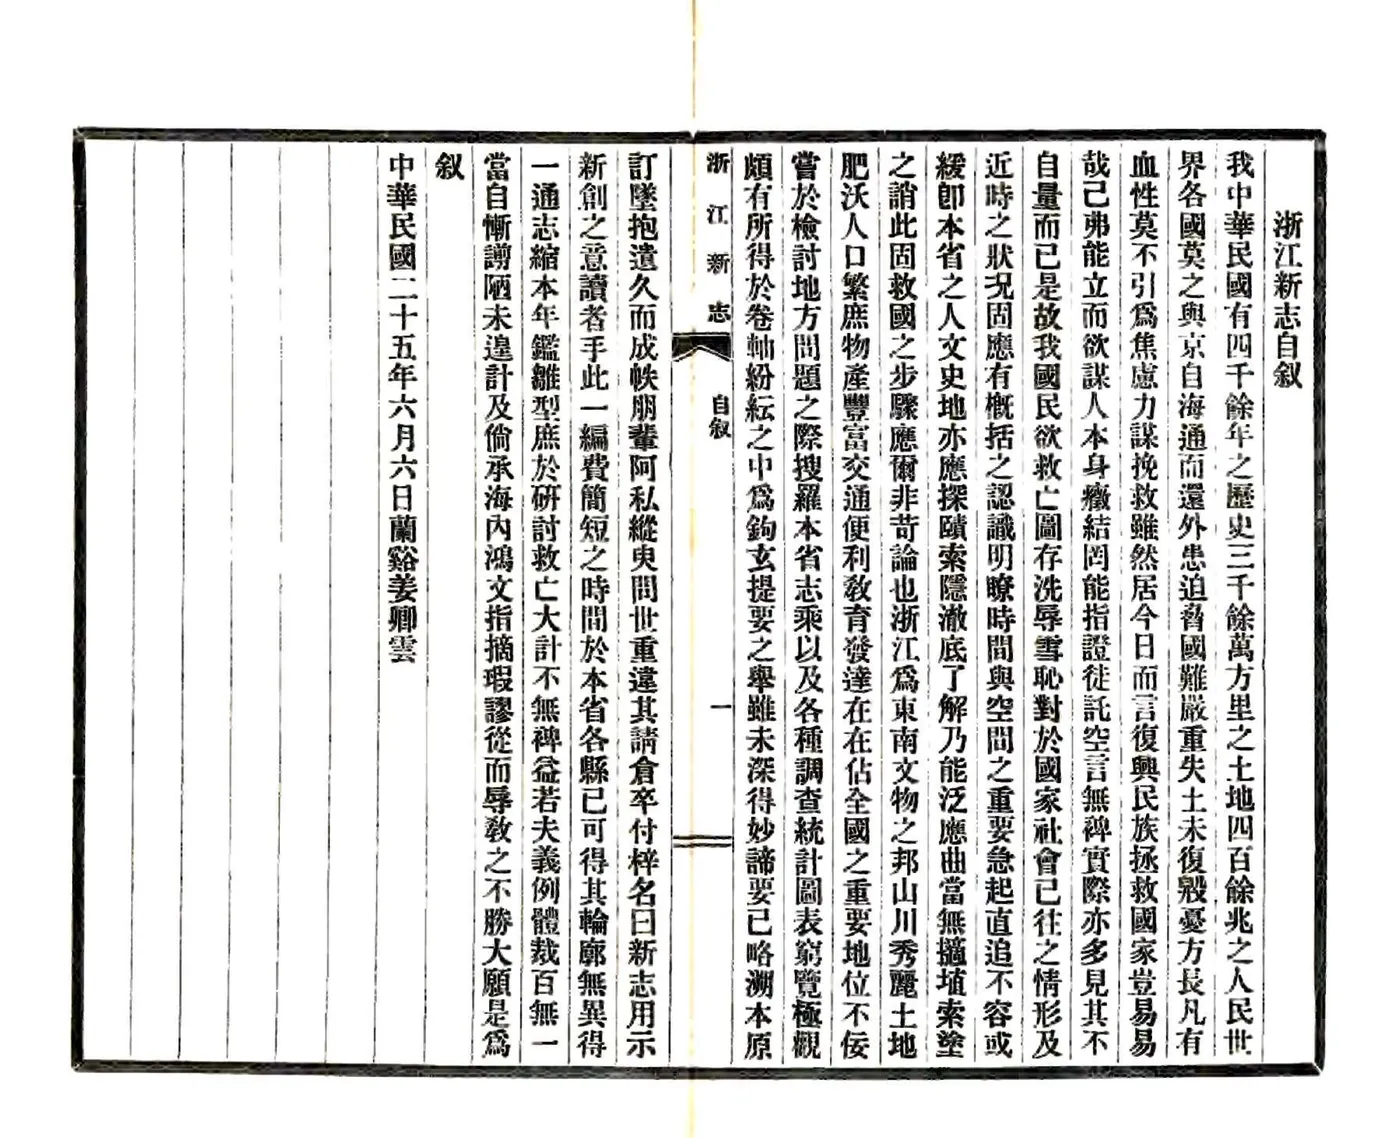 浙江新志自叙
我中華民國有四千餘年之歷史三千餘萬方里之土地四百餘兆之人民世
界各國莫之與京自海通而還外患迫脅國難嚴重失土未復毀憂方長凡有
血性莫不引爲焦慮力謀挽救雖然居今日而言復興民族拯救國家豈易易
哉己弗能立而欲謀人本身癥結罔能指證徒託空言無裨實際亦多見其不
自量而已是故我國民欲救亡圖存洗辱雪恥對於國家社會已往之情形及
近時之狀況固應有概括之認識明瞭時間與空間之重要急起直追不容或
緩卽本省之人文史地亦應探賾索隱澈底了解乃能泛應曲當無擿埴索塗
之誚此固救國之步驟應爾非苛論也浙江爲東南文物之邦山川秀麗土地
肥沃人口繁庶物產豐富交通便利敎育發達在在佔全國之重要地位不佞
嘗於檢討地方問題之際搜羅本省志乘以及各種調查統計圖表窮覽極觀
頗有所得於卷軸紛紜之中爲鉤玄提要之舉雖未深得妙諦要已略溯本原
浙江新志
自叙
一
訂墜抱遺久而成帙朋輩阿私縱臾問世重違其請倉卒付梓名曰新志用示
新創之意讀者手此一編費簡短之時間於本省各縣已可得其輪廓無異得
一通志縮本年鑑雛型庶於硏討救亡大計不無裨益若夫義例體裁百無一
當自慚譾陋未遑計及倘承海內鴻文指摘瑕謬從而辱敎之不勝大願是爲
叙
中華民國二十五年六月六日蘭谿姜卿雲